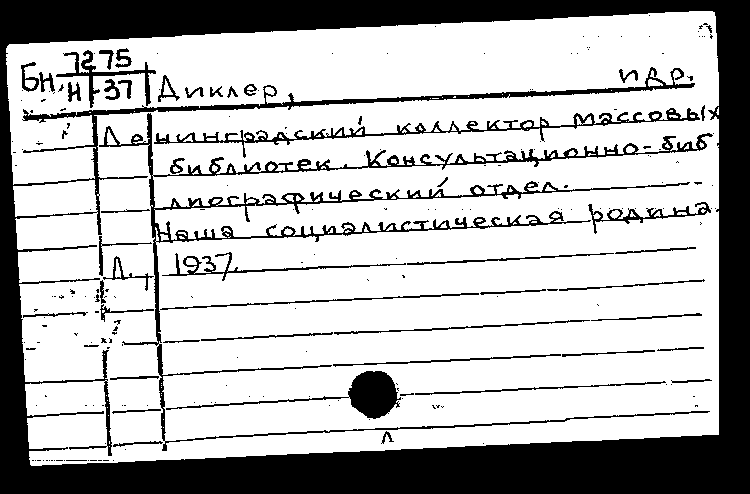 Бн. 7275
Н-37 Диклер, и др.
Ленинградский коллектор массовых
библиотек. Консультационно-биб
лиографический отдел.
Наша социалистическая родина.
Л., 1937.